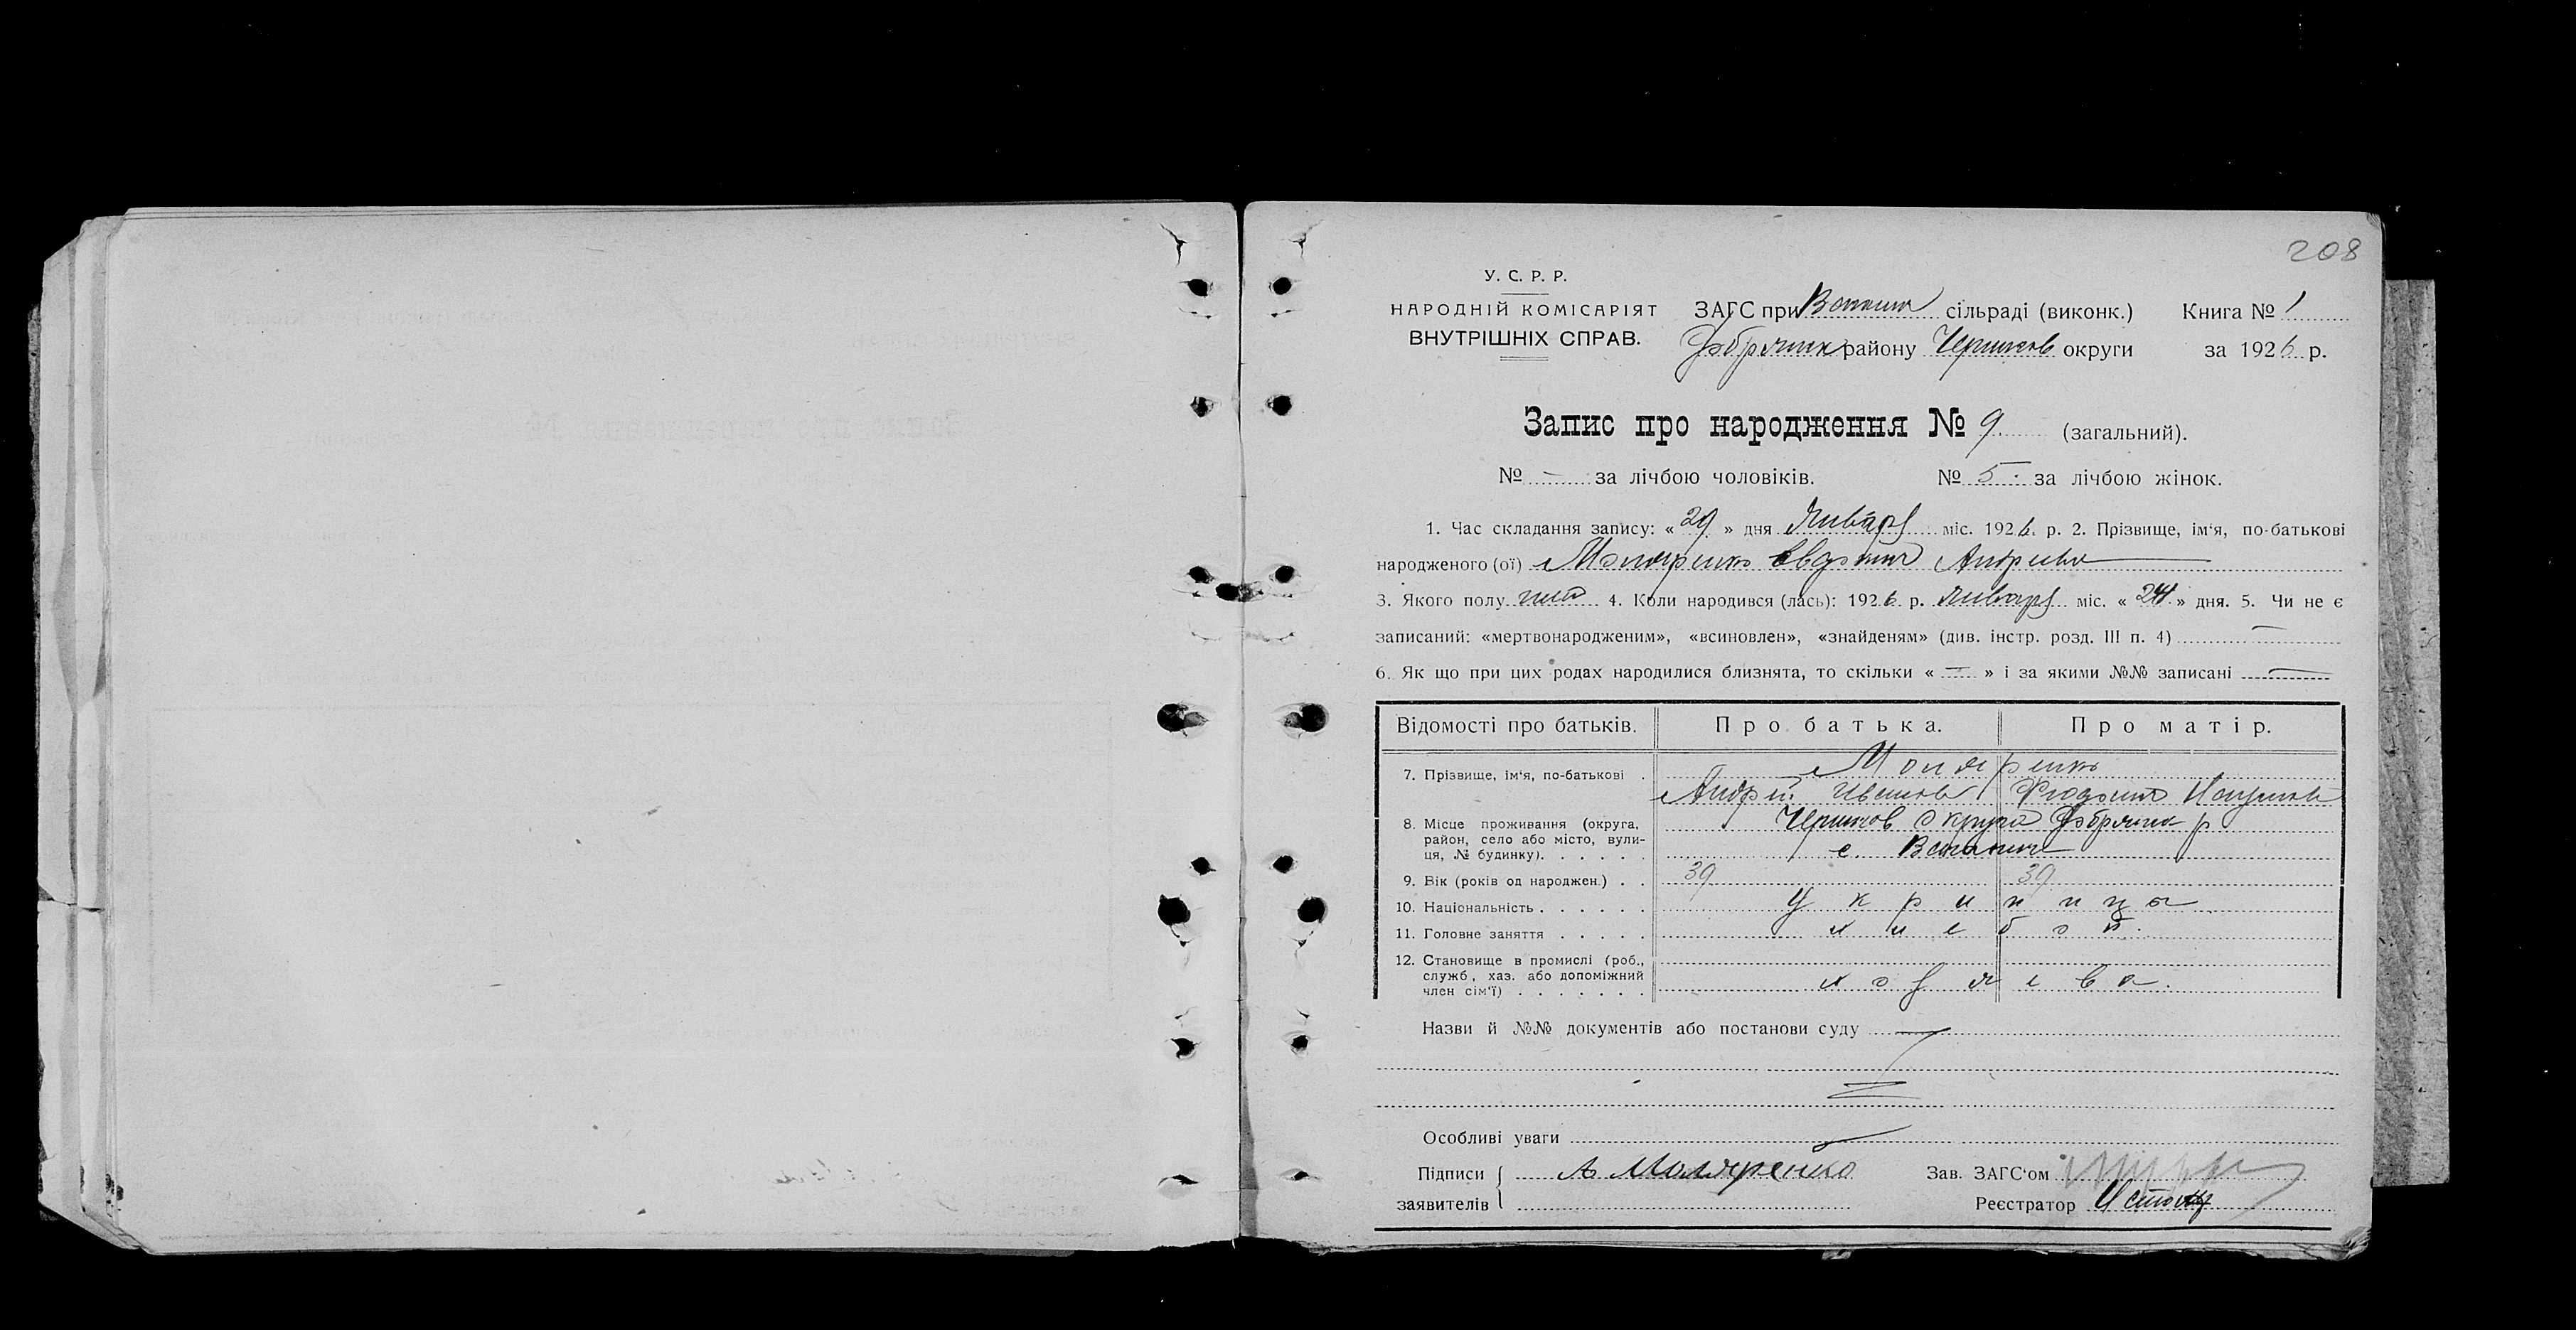 208
У. С. Р. Р.
НАРОДНІЙ КОМІСАРІЯТ
ВНУТРІШНІХ СПРАВ.
ЗАГС при сільраді (виконк.) Книга № 1
району Чернигов округи за 1926 р.
Запис про народження № 9 (загальний).
№ — за лічбою чоловіків. № 5 за лічбою жінок.
1. Час складання запису: «29» дня Января міс. 1926 р. 2. Прізвище, ім‘я, по-батькові
народженого (ої) Моляренко Андреева
3. Якого полу 4. Коли народився (лась): 1926 р. Января міс. «24» дня. 5. Чи не є
записаний: «мертвонародженим», «всиновлен», «знайденям» (див. інстр. розд. III п. 4) —
6. Як що при цих родах народилися близнята, то скільки « — » і за якими №№ записані —
Відомості про батьків. Про батька. Про матір.
7. Прізвище, ім‘я, по-батькові Моляренко
Андрей Иванов
8. Місце проживання (округа, район, село або місто, вулиця, № будинку) Чернигов округа р
с.
9. Вік (років од народжен.) 39 39
10. Національність украинца
11. Головне заняття хлебоп.
12. Становище в промислі (роб., служб, хаз. або допоміжний член сім‘ї) хозяева.
Назви й №№ документів або постанови суду —
Особливі уваги —
Підписи заявителів А Моляренко
Зав. ЗАГС‘ом
Реєстратор